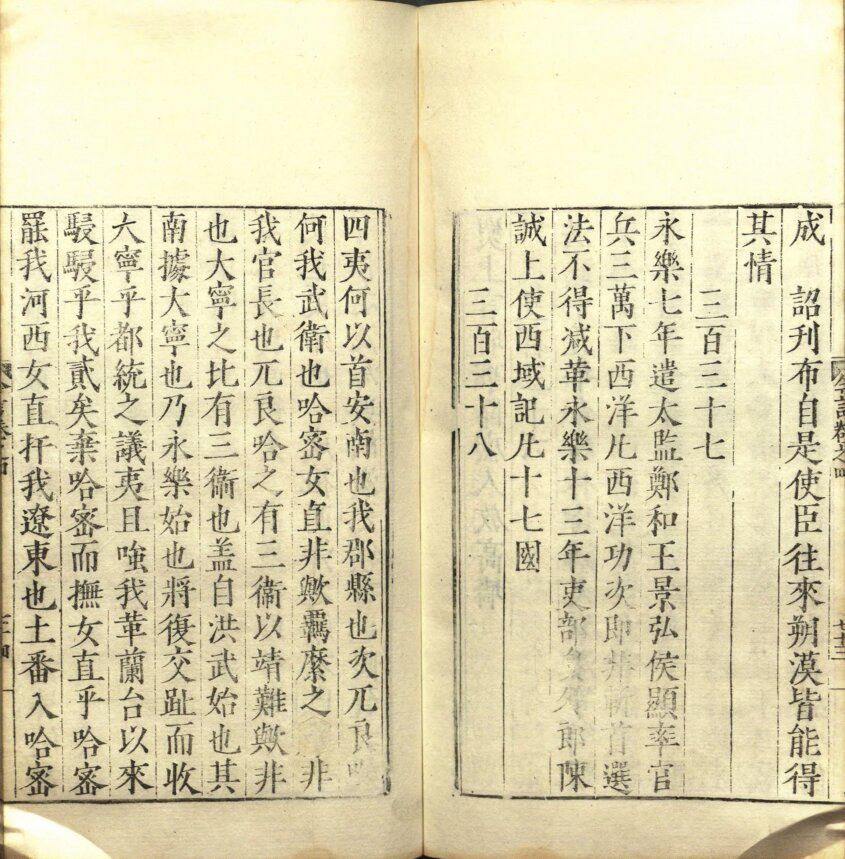 成　詔刋布自是使臣徃來朔漠皆能得
其情
三百三十七
永樂七年遣太監鄭和王景弘侯顯率官
兵三萬下西洋凡西洋功次即非斬首選
法不得减革永樂十三年吏部員外郎陳
誠上使西域記凡十七國
三百三十八
四夷何以首安南也我郡縣也次兀良
何我武衛也哈宻女直非歟羈縻之　非
我官長也兀良哈之有三衛以靖難歟非
也大寧之北有三衛也盖自洪武始也其
南據大寧也乃永樂始也將復交趾而收
大寧乎都統之議夷且嗤我葦蘭台以來
駸駸乎我貳矣棄哈宻而撫女直乎哈宻
罷我河西女直扞我遼東也土番入哈宻